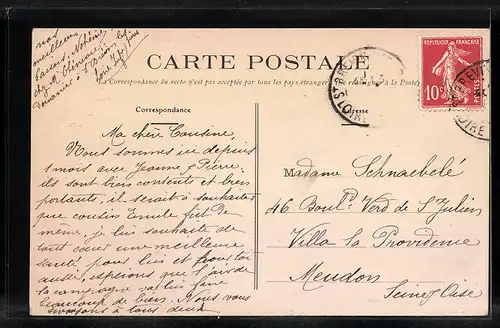 nos
meilleurs
baisers,
chez Mr Clémence
CARTE POSTALE
La Correspondance du recto n'est pas acceptée par tous les pays étrangers à la Poste.)
RÉPUBLIQUE FRANÇAISE
10c
POSTES
LOIRE
Correspondance
Adresse
Ma chère Cousine,
Nous sommes ici depuis
1 mois avec Jeanne & Pierre,
ils sont bien contents et bien
portants, il serait à souhaiter
que cousin Emile fut de
même, je lui souhaite de
tout cœur une meilleure
santé, pour lui et pour toi
aussi, espérons que l'air de
la campagne va lui faire
beaucoup de bien. Nous vous
à tous deux
Madame Schnaebelé
46 Boulrd Verd de St Julien
Villa la Providence
Meudon
Seine & Oise